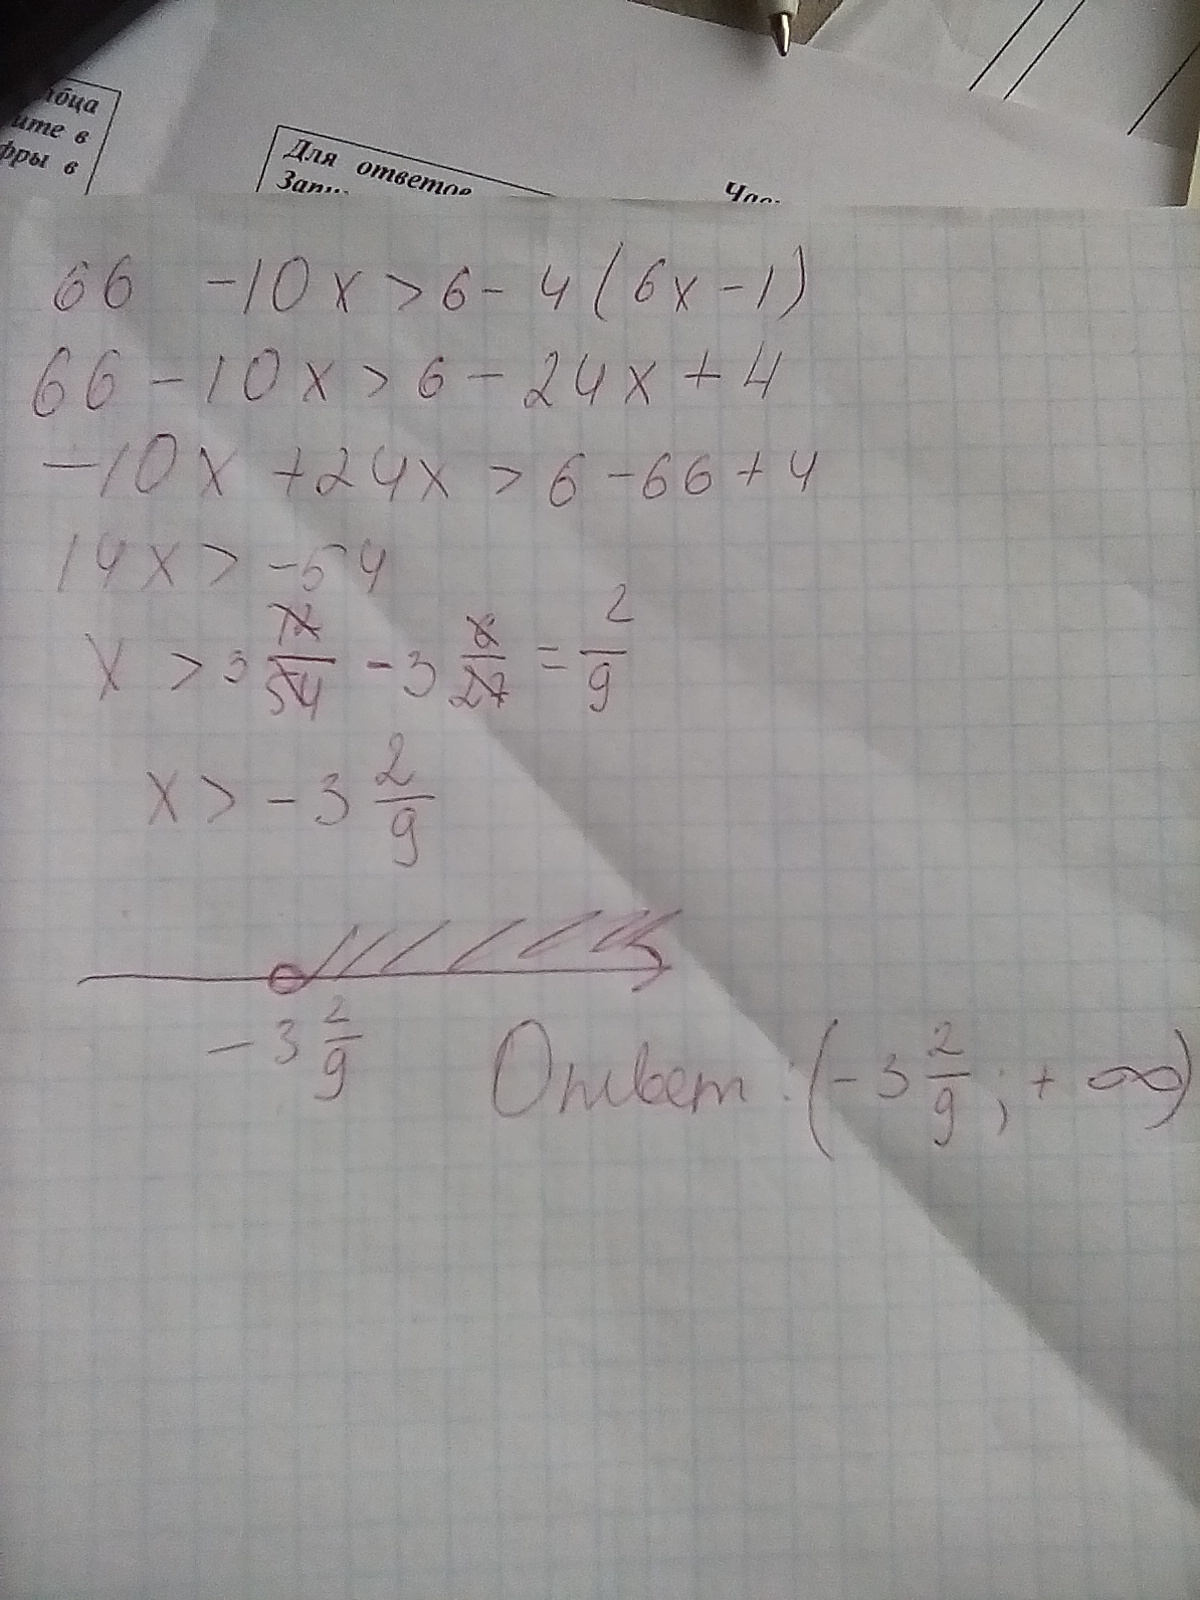 ите в
фры в
Для ответов
66 -10x > 6 - 4(6x - 1)
66 - 10x > 6 - 24x + 4
-10x + 24x > 6 - 66 + 4
14x > -54
x > 3 12/54 - 3 6/27 = 2/9
x > -3 2/9
-3 2/9
Ответ: (-3 2/9; + ∞)